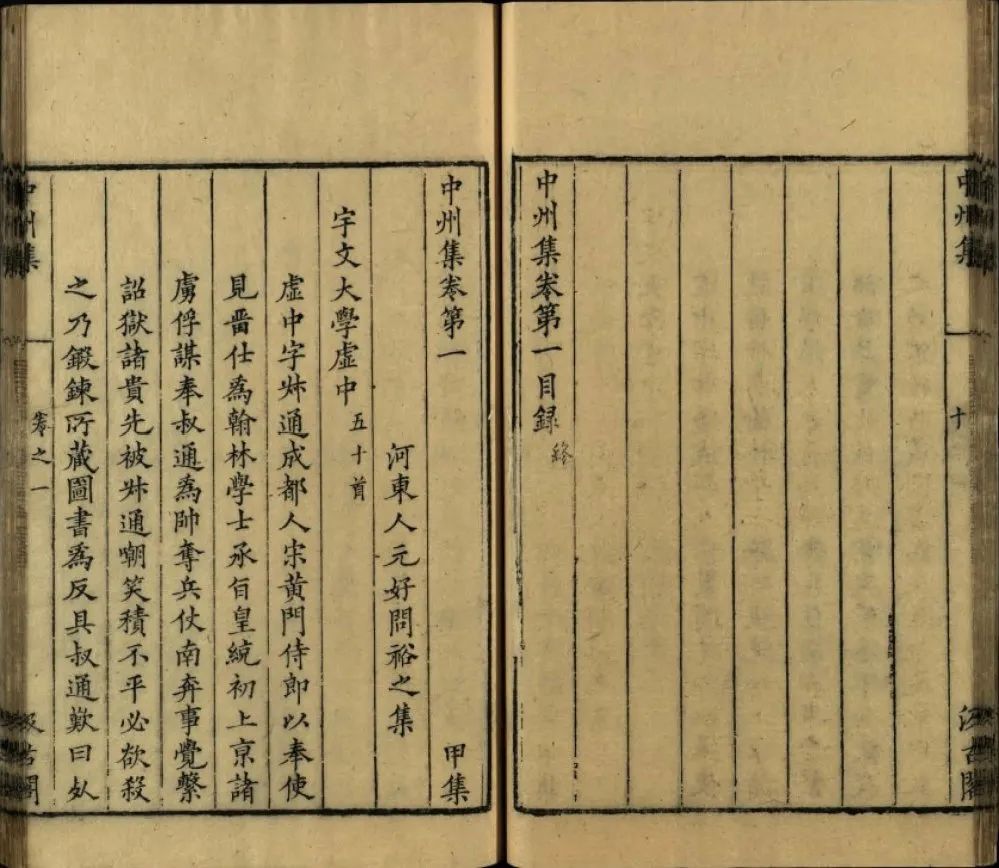 中州集 十 汲古閣
中州集卷第一目録 終
中州集卷第一 甲集
河東人元好問裕之集
宇文大學虛中 五十首
虛中字叔通成都人宋黃門侍郎以奉使
見畱仕爲翰林學士承旨皇統初上京諸
虜俘謀奉叔通爲帥奪兵仗南奔事覺繫
詔獄諸貴先被叔通嘲笑積不平必欲殺
之乃鍛鍊所藏圖書爲反具叔通歎曰死
中州集 卷之一 汲古閣